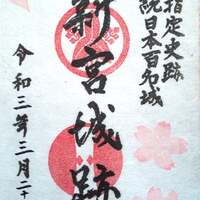 指定史跡
院日本百名城
新宮城跡
令和三年三月二十